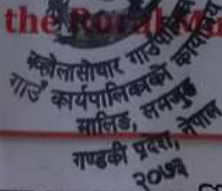 the Rural Ma
क्व्होलासोथार गाउँपालिका
गाउँ कार्यपालिकाको कार्यालय
मालिङ, लमजुङ
गण्डकी प्रदेश, नेपाल
२०७३